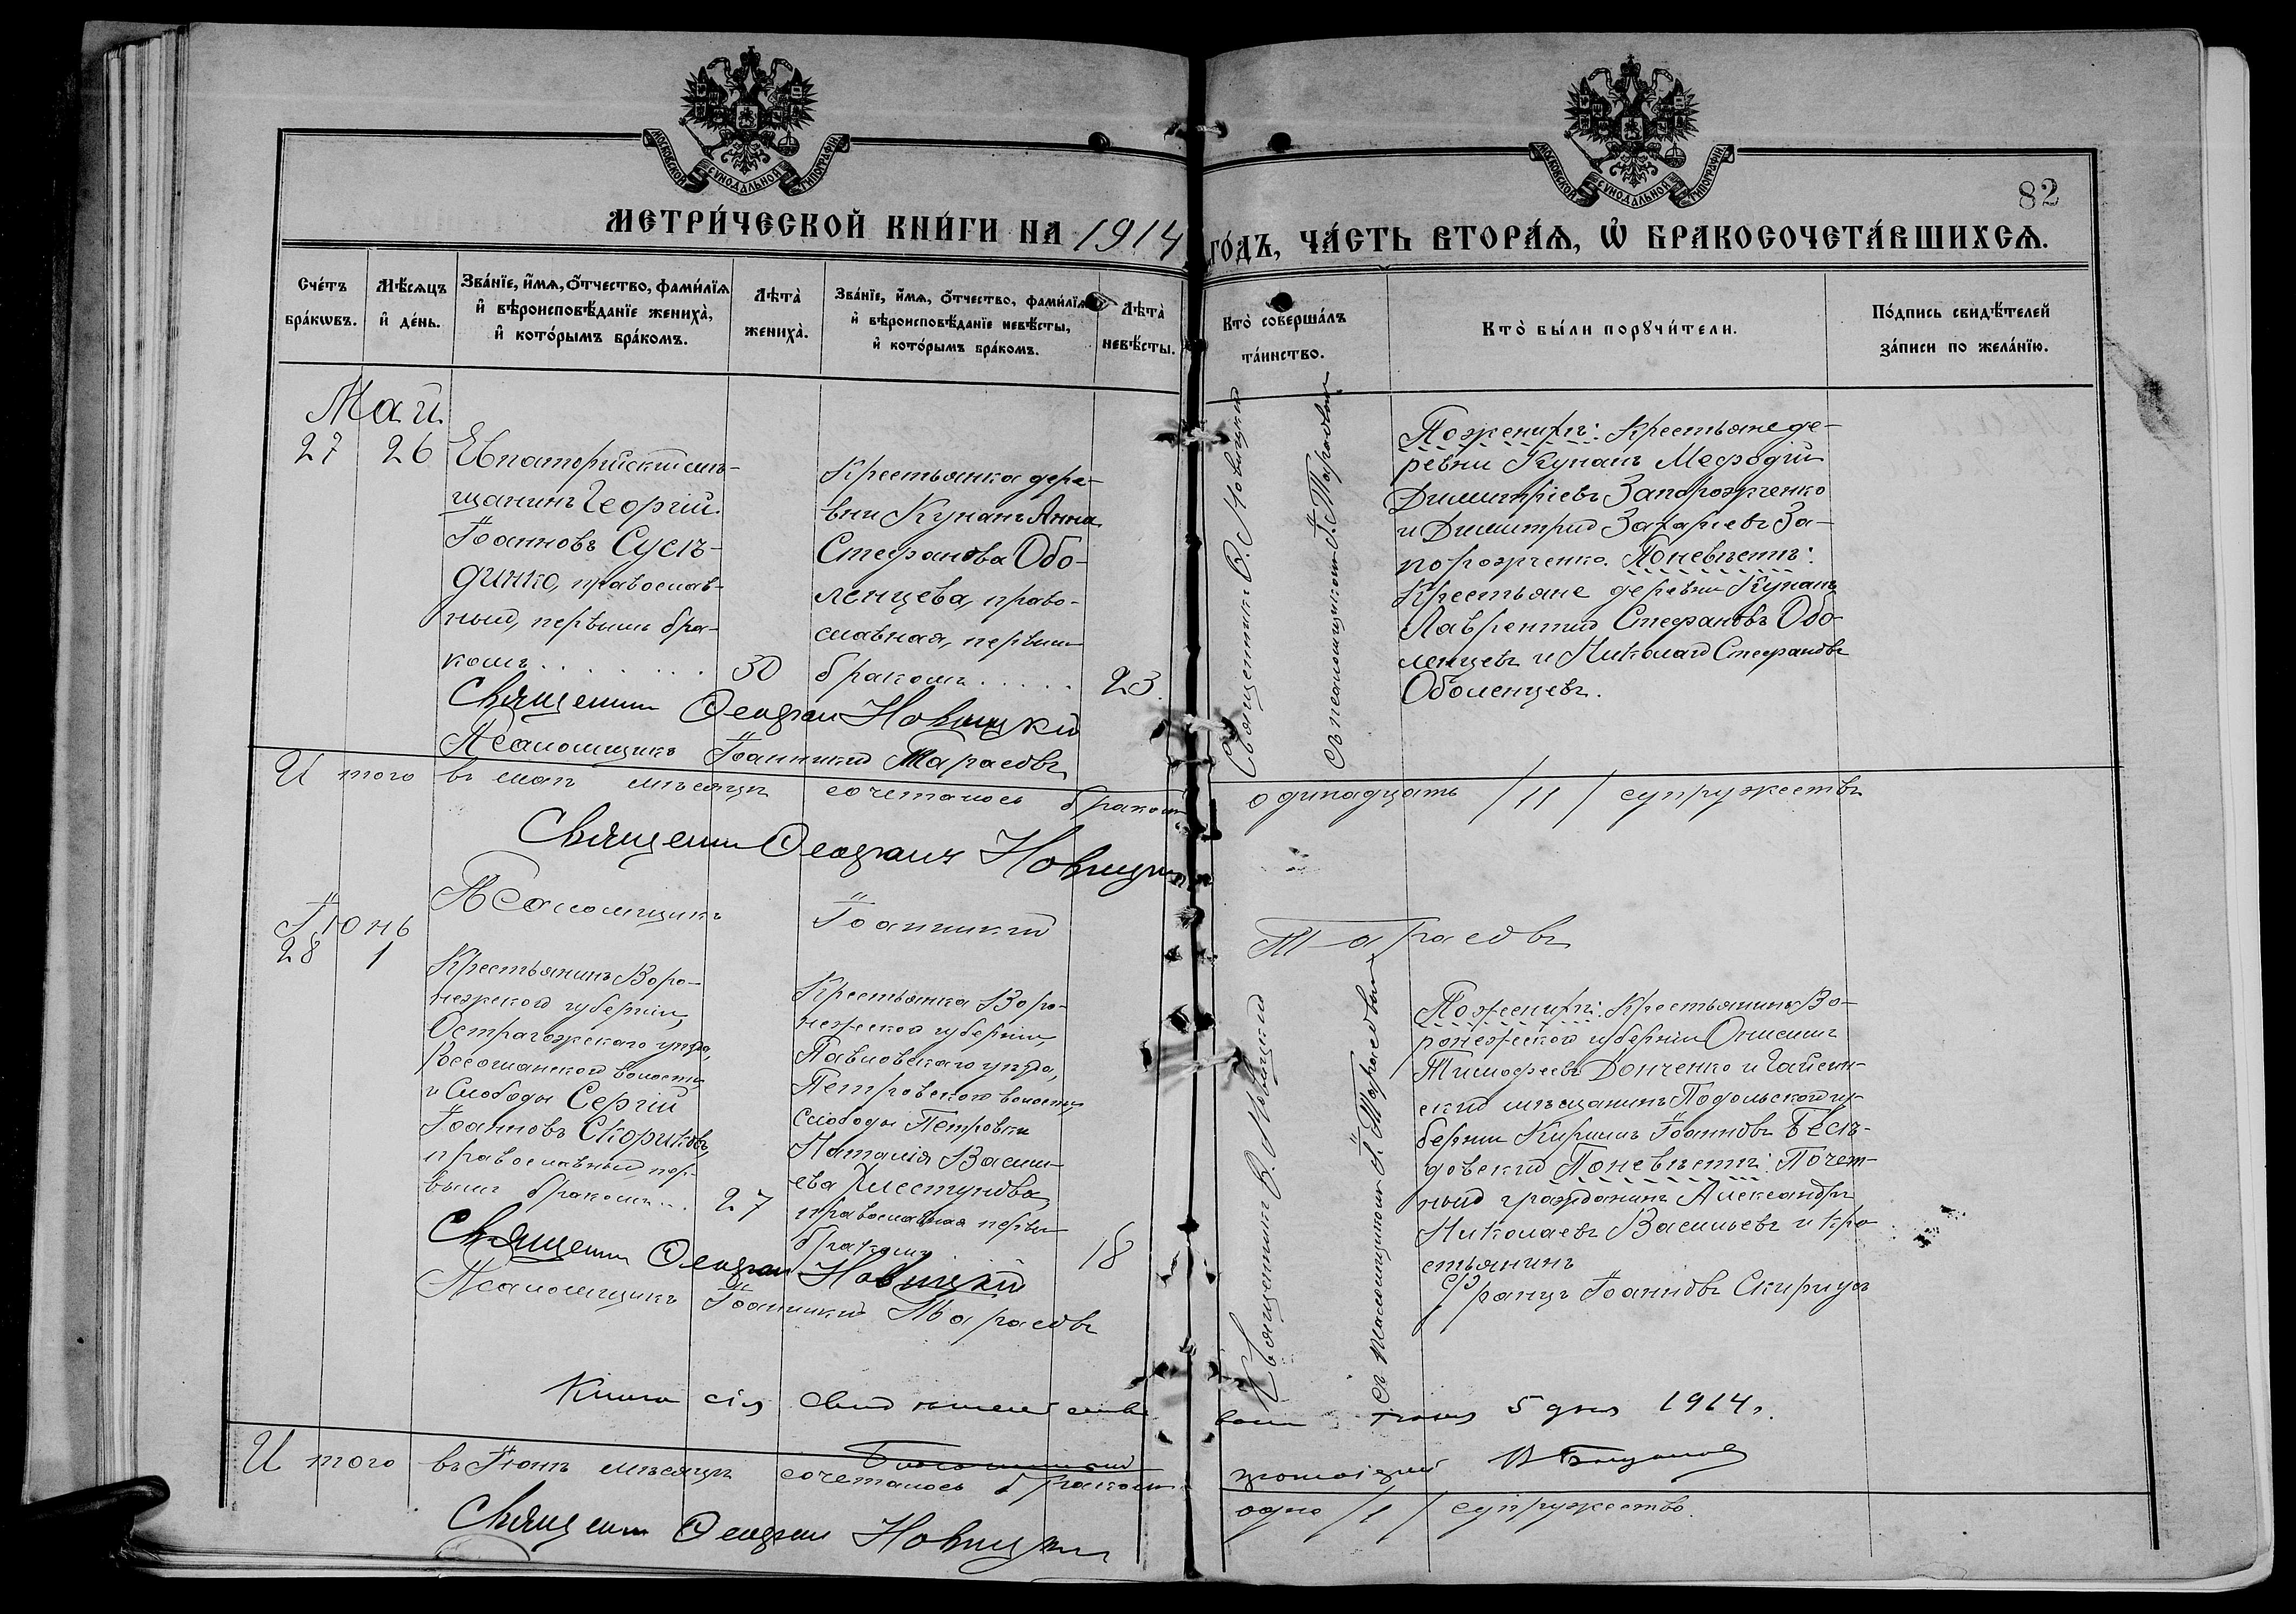 МОСКОВСКОЙ СѴНОДАЛЬНОЙ ТИПОГРАФІИ
МОСКОВСКОЙ СѴНОДАЛЬНОЙ ТИПОГРАФІИ
82
МЕТРИ́ЧЕСКОЙ КНИ́ГИ НА 1914 ГО́ДЪ, ЧА́СТЬ ВТОРА́Ѧ, Ѡ҆ БРАКОСОЧЕТА́ВШИХСѦ.
Сче́тъ
бра́кѡвъ.
Мѣ́сѧцъ
и҆ де́нь.
Зва́нїе, и҆́мѧ, ѻ҆́тчество, фами́лїѧ
и҆ вѣроисповѣ́данїе жениха̀,
и҆ кото́рымъ бра́комъ.
Лѣта̀
жениха̀.
Зва́нїе, и҆́мѧ, ѻ҆́тчество, фами́лїѧ
и҆ вѣроисповѣ́данїе невѣ́сты,
и҆ кото́рымъ бра́комъ.
Лѣта̀
невѣ́сты.
Кто̀ соверша́лъ
та́инство.
Кто̀ бы́ли порꙋчи́тели.
По́дпись свидѣ́телей
за́писи по жела́нїю.
Май
27 26
Евпаторійскій мѣ-
щанинъ Георгій
Іоанновъ Сусѣ-
динко, православ-
ный, первымъ бра-
комъ . . . . . . . . 30
Крестьянка дере-
вни Кунанъ Анна
Стефанова Обо-
ленцева, право-
славная, первым
бракомъ . . . . . 23.
Священникъ Ѳ. Новицкій
съ псаломщикомъ І. Тарасовым
По женихѣ: Крестьяне де-
ревни Кунанъ Мефодій
Димитріевъ Запорожченко
и Димитрий Захаріевъ За-
порожченко. По невѣстѣ:
Крестьяне деревни Кунанъ
Лаврентий Стефановъ Обо-
ленцевъ и Николай Стефановъ
Оболенцевъ.
Священник Ѳеофан Новицкій
Псаломщикъ Іоанникий Тарасовъ
Итого въ маѣ мѣсяцѣ сочеталось бракомъ одинадцать /11/ супружествъ
Священник Ѳеофанъ Новицкій
Псаломщикъ Іоанникий Тарасовъ
Іюнь
28 1
Крестьянинъ Воро-
нежской губерніи,
Острагожскаго уѣзда,
Россошанской волости
и Слободы Сергій
Іоанновъ Скориковъ
православный, пер-
вымъ бракомъ . . . 27
Крестьянка Воро-
нежской губерніи,
Павловскаго уѣзда,
Петровской волости
Слободы Петровки
Наталія Василь-
ева Хлестунова,
православная первым
бракомъ 18
Священникъ Ѳ. Новицкій
съ Псаломщикомъ І. Тарасовым
По женихѣ: Крестьянинъ Во-
ронежской губерніи Онисимъ
Тимофеевъ Донченко и Гайсин-
ский мѣщанинъ Подольской гу-
берніи Кириллъ Іоанновъ Бесѣ-
довский По невѣстѣ: Почет-
ный гражданинъ Александръ
Николаевъ Васильевъ и кре-
стьянинъ
Францъ Іоанновъ Скирицъ
Священник Ѳеофан Новицкій
Псаломщикъ Іоанникий Тарасовъ
Книга сія 5 дня 1914 г.
Итого въ Іюнѣ мѣсяцѣ сочеталось бракомъ одно /1/ супружество.
Священник Ѳеофан Новицкій